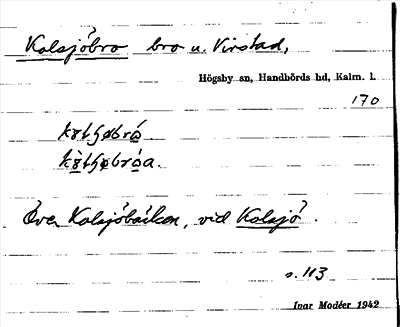 Kolsjöbro bro u. Virstad,
Högsby sn, Handbörds hd, Kalm. l.
170
Över Kolsjöbäcken, vid Kolsjö.
s. 113
Ivar Modéer 1942